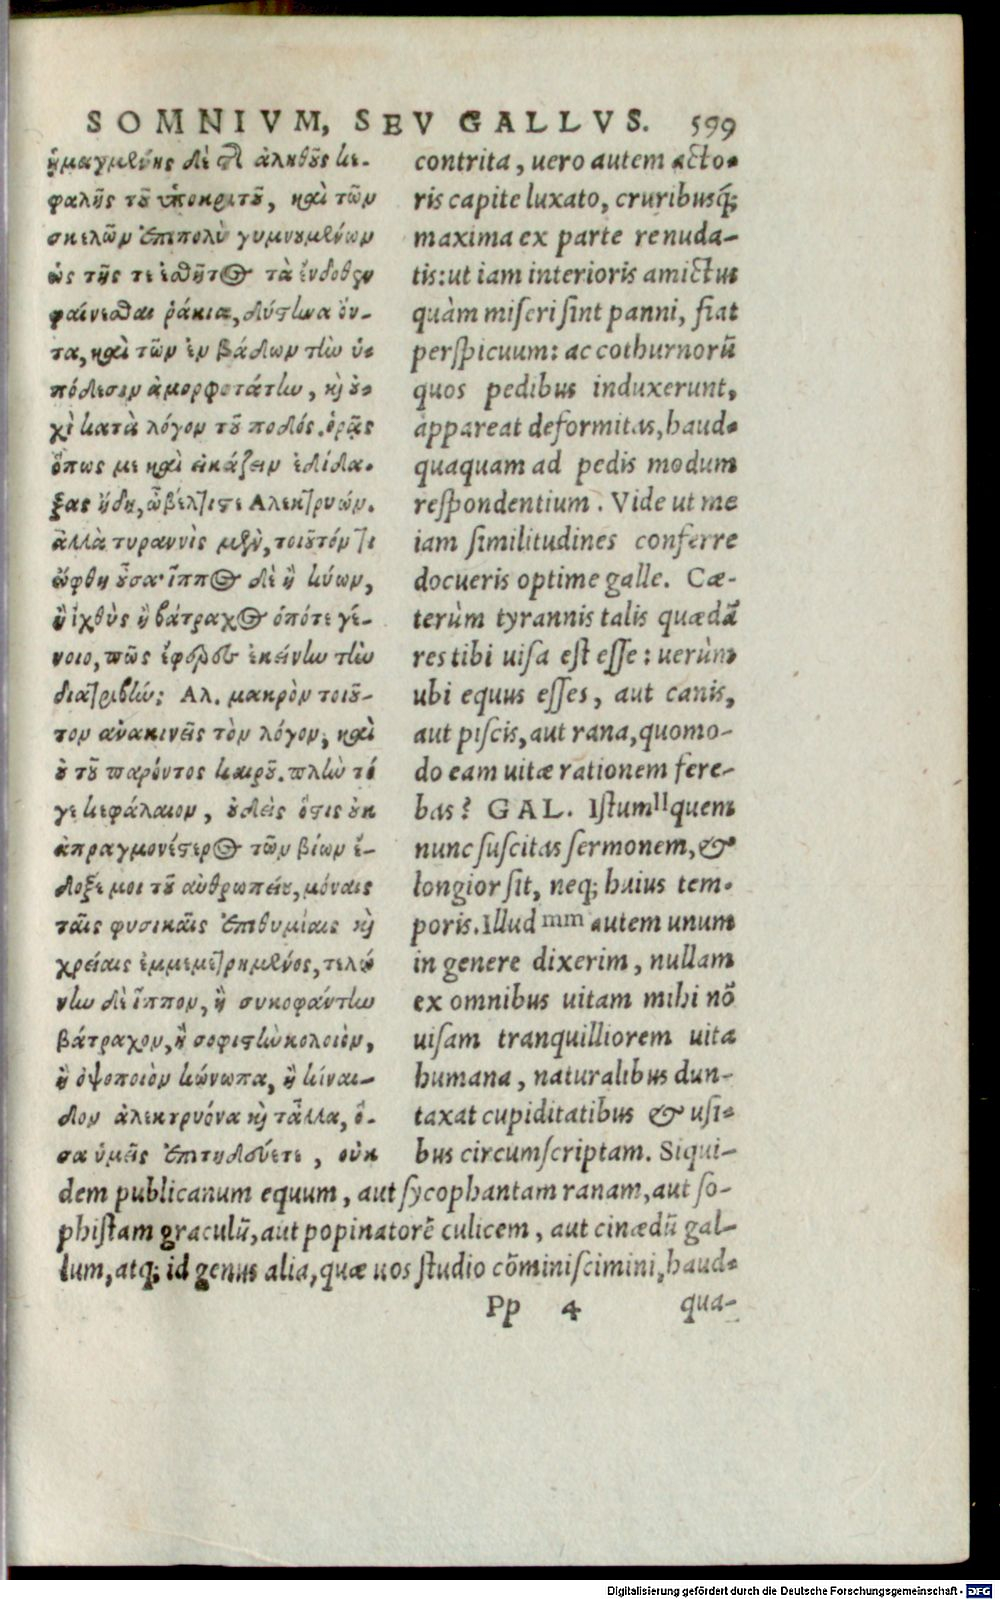 SOMNIVM, SEV GALLVS. 599
ᾑμαγμένης δὲ τῆς ἀληθοῦς κε-
φαλῆς τοῦ ὑποκριτοῦ, καὶ τῶν
σκελῶν ἐπιπολὺ γυμνουμένων
ὡς τῆς τε ἐσθῆτος τὰ ἔνδοθεν
φαίνεσθαι ῥάκια, δύστηνα ὄν-
τα, καὶ τῶν ἐμβάδων τὴν ὑ-
πόδεσιν ἀμορφοτάτην, καὶ οὐ-
χὶ κατὰ λόγον τοῦ ποδός. ὁρᾷς
ὅπως με καὶ εἰκάζειν ἐδίδα-
ξας ἤδη, ὦ βέλτιστε Αλεκτρυών.
ἀλλὰ τυραννὶς μὲν, τοιοῦτόν τι
ὤφθη οὖσα· ἵππος δὲ ἢ κύων,
ἢ ἰχθὺς ἢ βάτραχος ὁπότε γέ-
νοιο, πῶς ἔφερες ἐκείνην τὴν
διατριβήν; Αλ. μακρὸν τοῦ-
τον ἀνακινεῖς τὸν λόγον, καὶ
οὐ τοῦ παρόντος καιροῦ. πλὴν τό
γε κεφάλαιον, οὐδεὶς ὅστις οὐκ
ἀπραγμονέστερος τῶν βίων ἔ-
δοξέ μοι τοῦ ἀνθρωπείου, μόναις
ταῖς φυσικαῖς ἐπιθυμίαις καὶ
χρείαις ἐμμεμετρημένος, τελώ
νην δὲ ἵππον, ἢ συκοφάντην
βάτραχον, ἢ σοφιστὴν κολοιὸν,
ἢ ὀψοποιὸν κώνωπα, ἢ κίναι-
δον ἀλεκτρυόνα καὶ τἄλλα, ὅ-
σα ὑμεῖς ἐπιτηδεύετε, οὐκ
contrita, uero autem acto-
ris capite luxato, cruribusq́;
maxima ex parte renuda-
tis: ut iam interioris amictus
quàm miseri sint panni, fiat
perspicuum: ac cothurnorũ
quos pedibus induxerunt,
appareat deformitas, haud-
quaquam ad pedis modum
respondentium. Vide ut me
iam similitudines conferre
docueris optime galle. Cæ-
terùm tyrannis talis quædã
res tibi uisa est esse: uerùm
ubi equus esses, aut canis,
aut piscis, aut rana, quomo-
do eam uitæ rationem fere-
bas? GAL. Istum ll quem
nunc suscitas sermonem, &
longior sit, neq; huius tem-
poris. Illud mm autem unum
in genere dixerim, nullam
ex omnibus uitam mihi nõ
uisam tranquilliorem uita
humana, naturalibus dun-
taxat cupiditatibus & usi-
bus circumscriptam. Siqui-
dem publicanum equum, aut sycophantam ranam, aut so-
phistam graculũ, aut popinatorẽ culicem, aut cinædũ gal-
lum, atq; id genus alia, quæ uos studio cõminiscimini, haud-
Pp 4 qua-
Digitalisierung gefördert durch die Deutsche Forschungsgemeinschaft - DFG